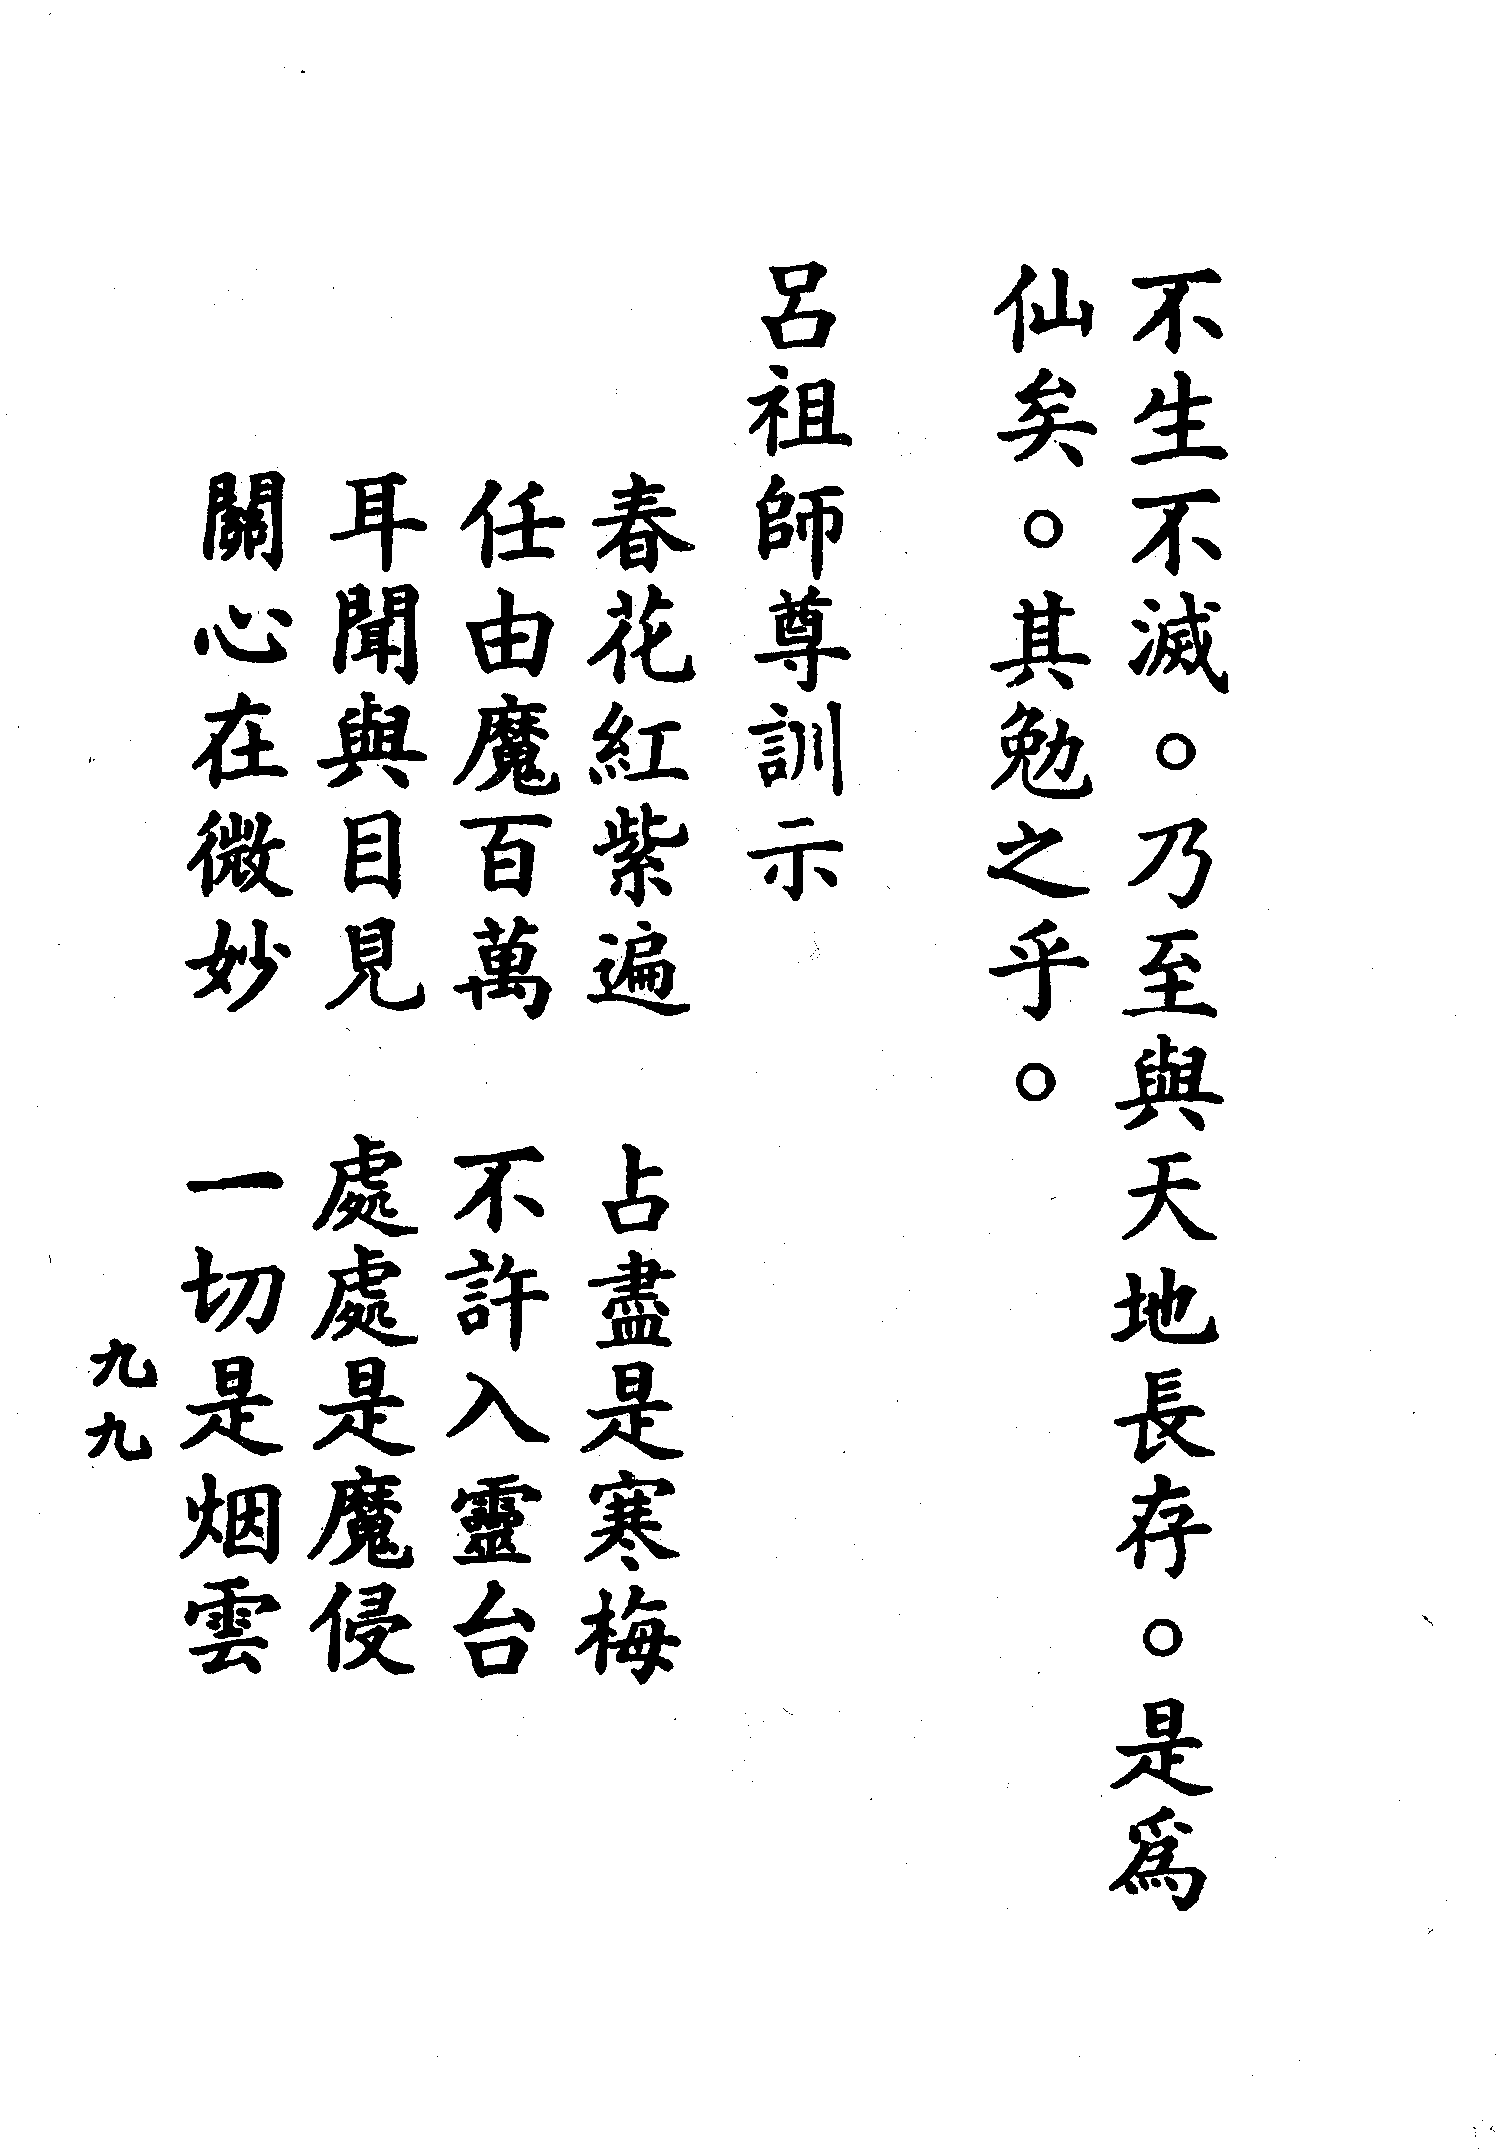 不生不滅。乃至與天地長存。是爲
仙矣。其勉之乎。
呂祖師尊訓示
春花紅紫遍　占盡是寒梅
任由魔百萬　不許入靈台
耳聞與目見　處處是魔侵
關心在微妙　一切是烟雲
九九